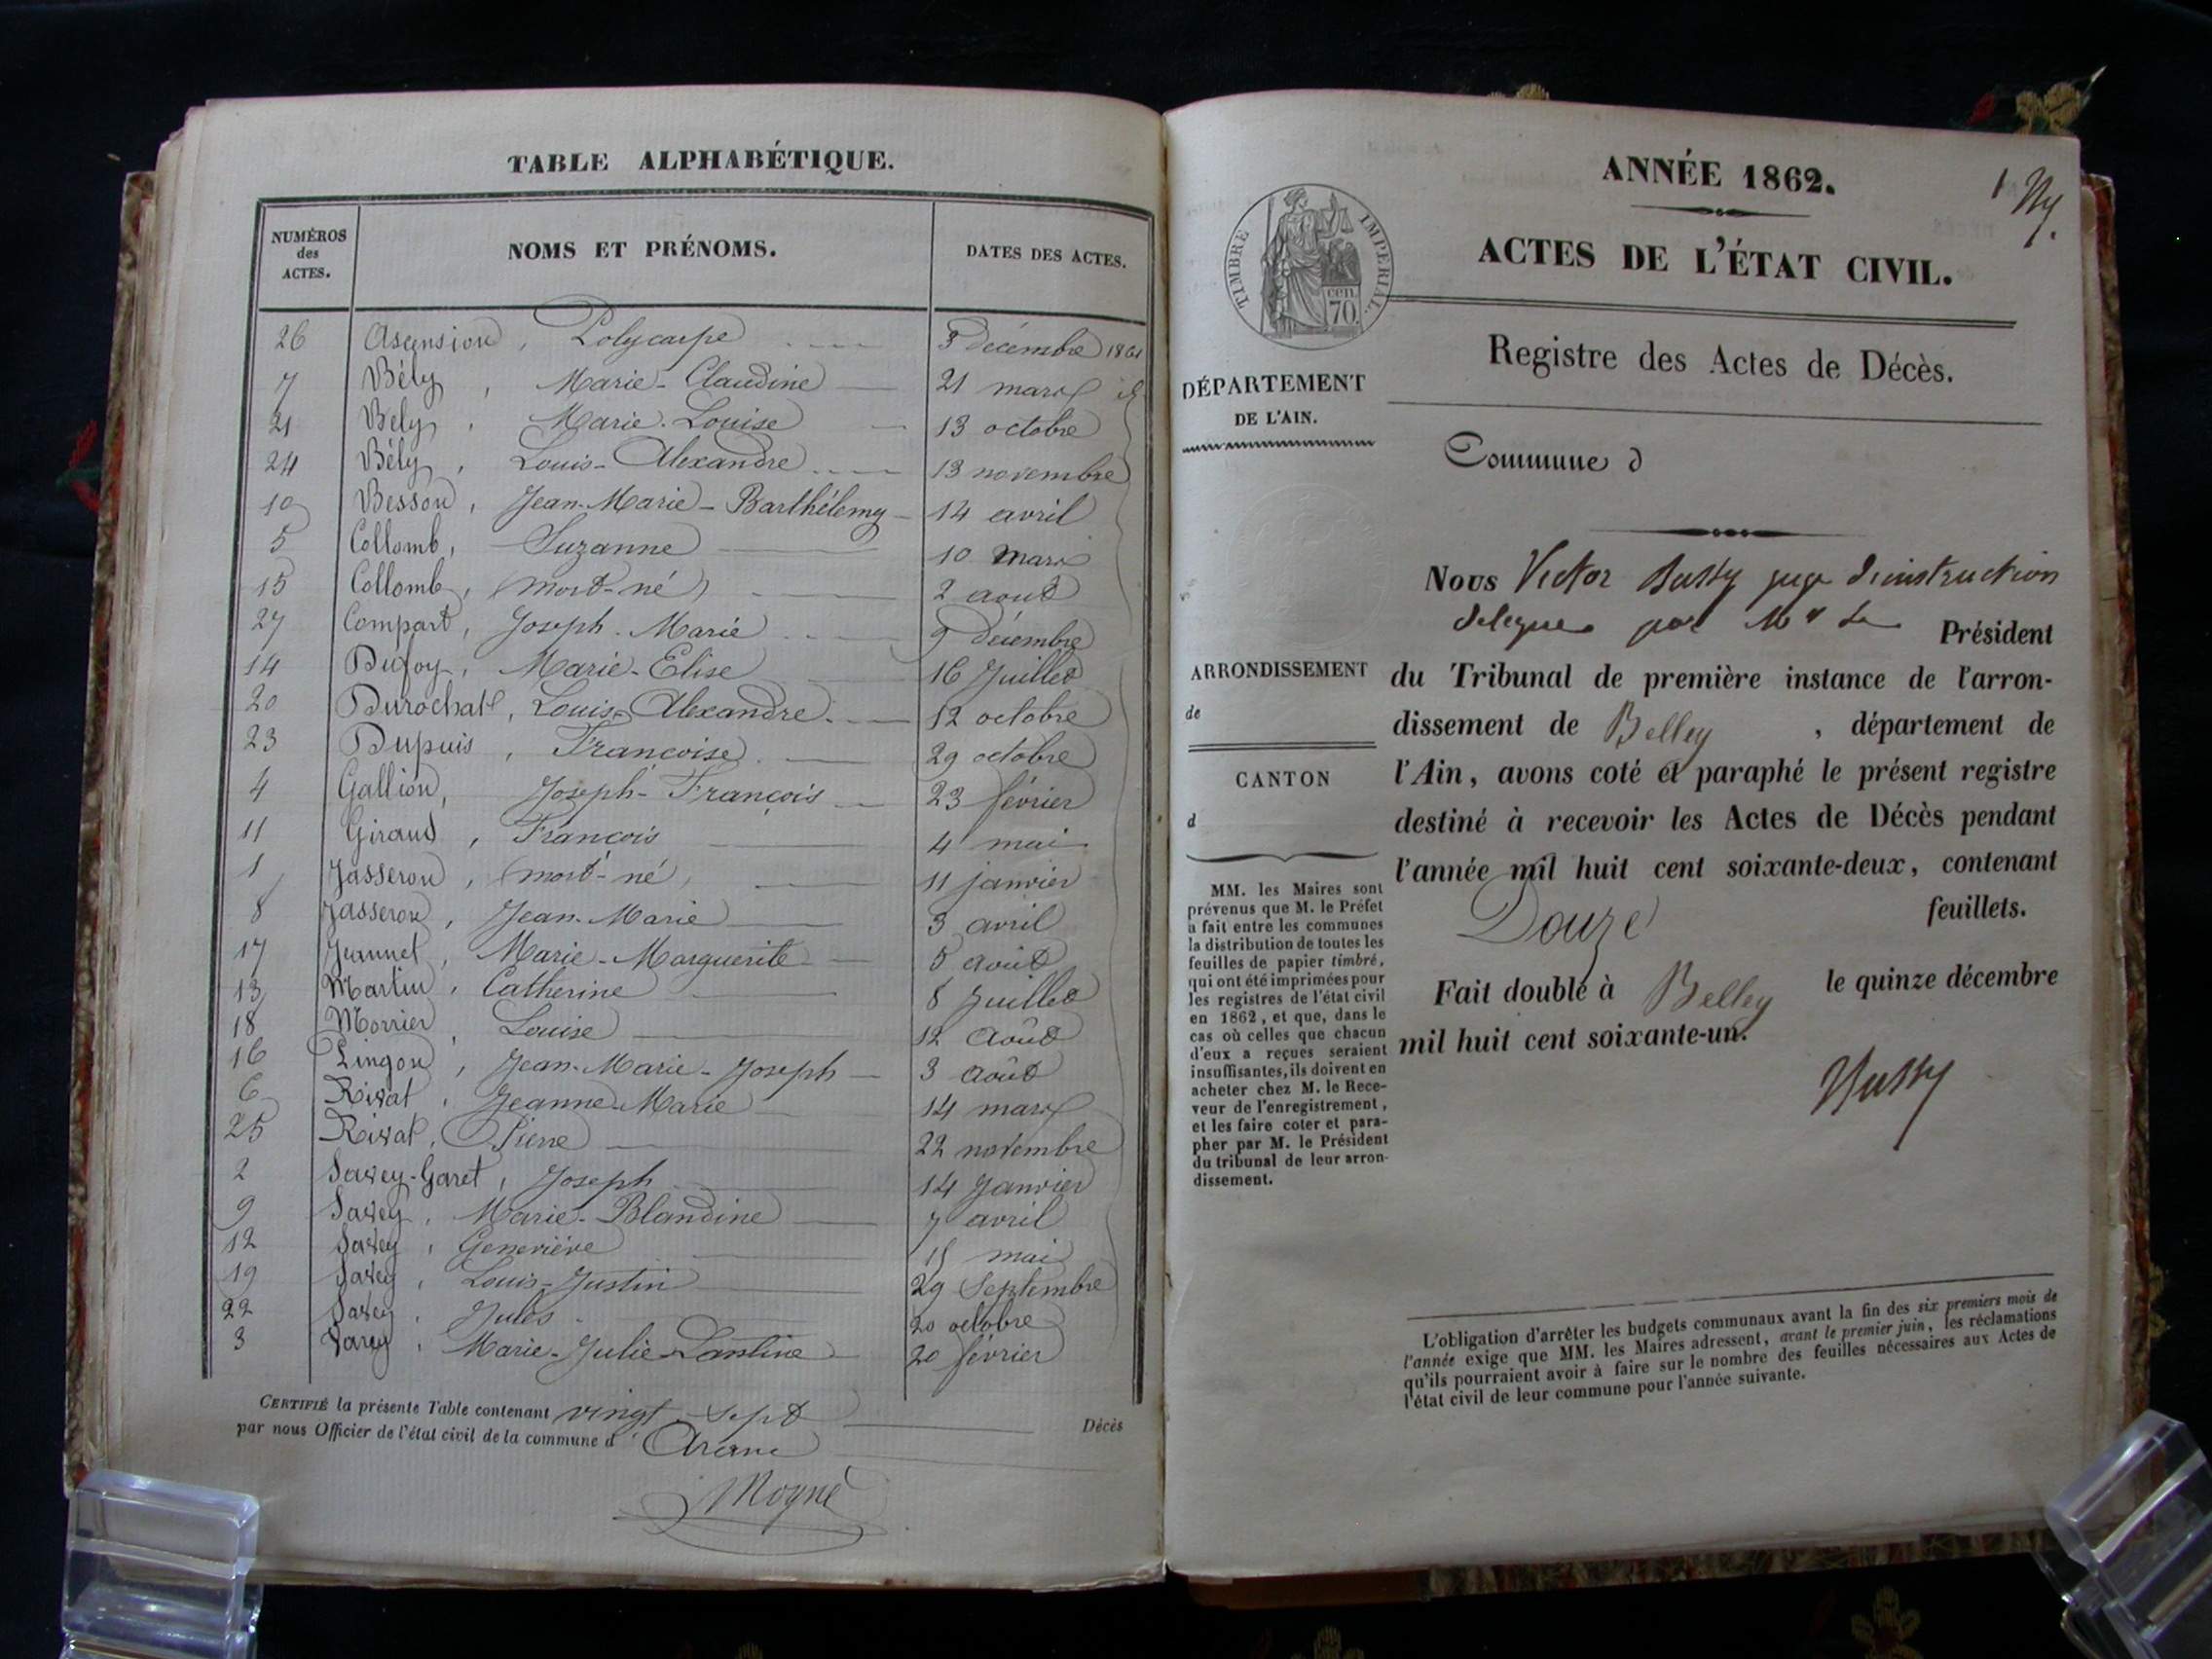 TABLE ALPHABÉTIQUE.
NUMÉROS des ACTES. NOMS ET PRÉNOMS. DATES DES ACTES.
26 Ascension, Polycarpe 3 décembre 1861
7 Bély, Marie-Claudine 21 mars id
21 Bély, Marie-Louise 13 octobre
24 Bély, Louis-Alexandre 13 novembre
10 Besson, Jean-Marie-Barthélemy 14 avril
5 Collomb, Suzanne 10 mars
15 Collomb, (mort-né) 2 août
27 Compart, Joseph-Marie 9 décembre
14 Dufoy, Marie-Elise 16 Juillet
20 Durochat, Louis-Alexandre 12 octobre
23 Dupuis, Françoise 29 octobre
4 Gallion, Joseph-François 23 février
11 Giraud, François 4 mai
1 Jasseron, (mort-né) 11 janvier
8 Jasseron, Jean-Marie 3 avril
17 Jeannet, Marie-Marguerite 5 août
13 Martin, Catherine 8 Juillet
18 Morrier, Louise 12 Août
16 Pingon, Jean-Marie-Joseph 3 Août
6 Rivat, Jeanne-Marie 14 mars
25 Rivat, Pierre 22 novembre
2 Savey-Garet, Joseph 14 Janvier
9 Savey, Marie-Blandine 7 avril
12 Savey, Geneviève 15 mai
19 Savey, Louis-Justin 29 Septembre
22 Savey, Jules 20 octobre
3 Varey, Marie-Julie 20 février
CERTIFIÉ la présente Table contenant vingt-sept Décès
par nous Officier de l'état civil de la commune d'Aranc
Mogné
1
ANNÉE 1862.
ACTES DE L'ÉTAT CIVIL.
TIMBRE IMPERIAL
cen. 70.
Registre des Actes de Décès.
DÉPARTEMENT
DE L'AIN.
Commune d
ARRONDISSEMENT
de
CANTON
d
MM. les Maires sont
prévenus que M. le Préfet
a fait entre les communes
la distribution de toutes les
feuilles de papier timbré,
qui ont été imprimées pour
les registres de l'état civil
en 1862, et que, dans le
cas où celles que chacun
d'eux a reçues seraient
insuffisantes, ils doivent en
acheter chez M. le Rece-
veur de l'enregistrement,
et les faire coter et para-
pher par M. le Président
du tribunal de leur arron-
dissement.
Nous Victor juge d'instruction
délégué par Mr Le Président
du Tribunal de première instance de l'arron-
dissement de Belley, département de
l'Ain, avons coté et paraphé le présent registre
destiné à recevoir les Actes de Décès pendant
l'année mil huit cent soixante-deux, contenant
Douze feuillets.
Fait double à Belley le quinze décembre
mil huit cent soixante-un.
L'obligation d'arrêter les budgets communaux avant la fin des six premiers mois de
l'année exige que MM. les Maires adressent, avant le premier juin, les réclamations
qu'ils pourraient avoir à faire sur le nombre des feuilles nécessaires aux Actes de
l'état civil de leur commune pour l'année suivante.